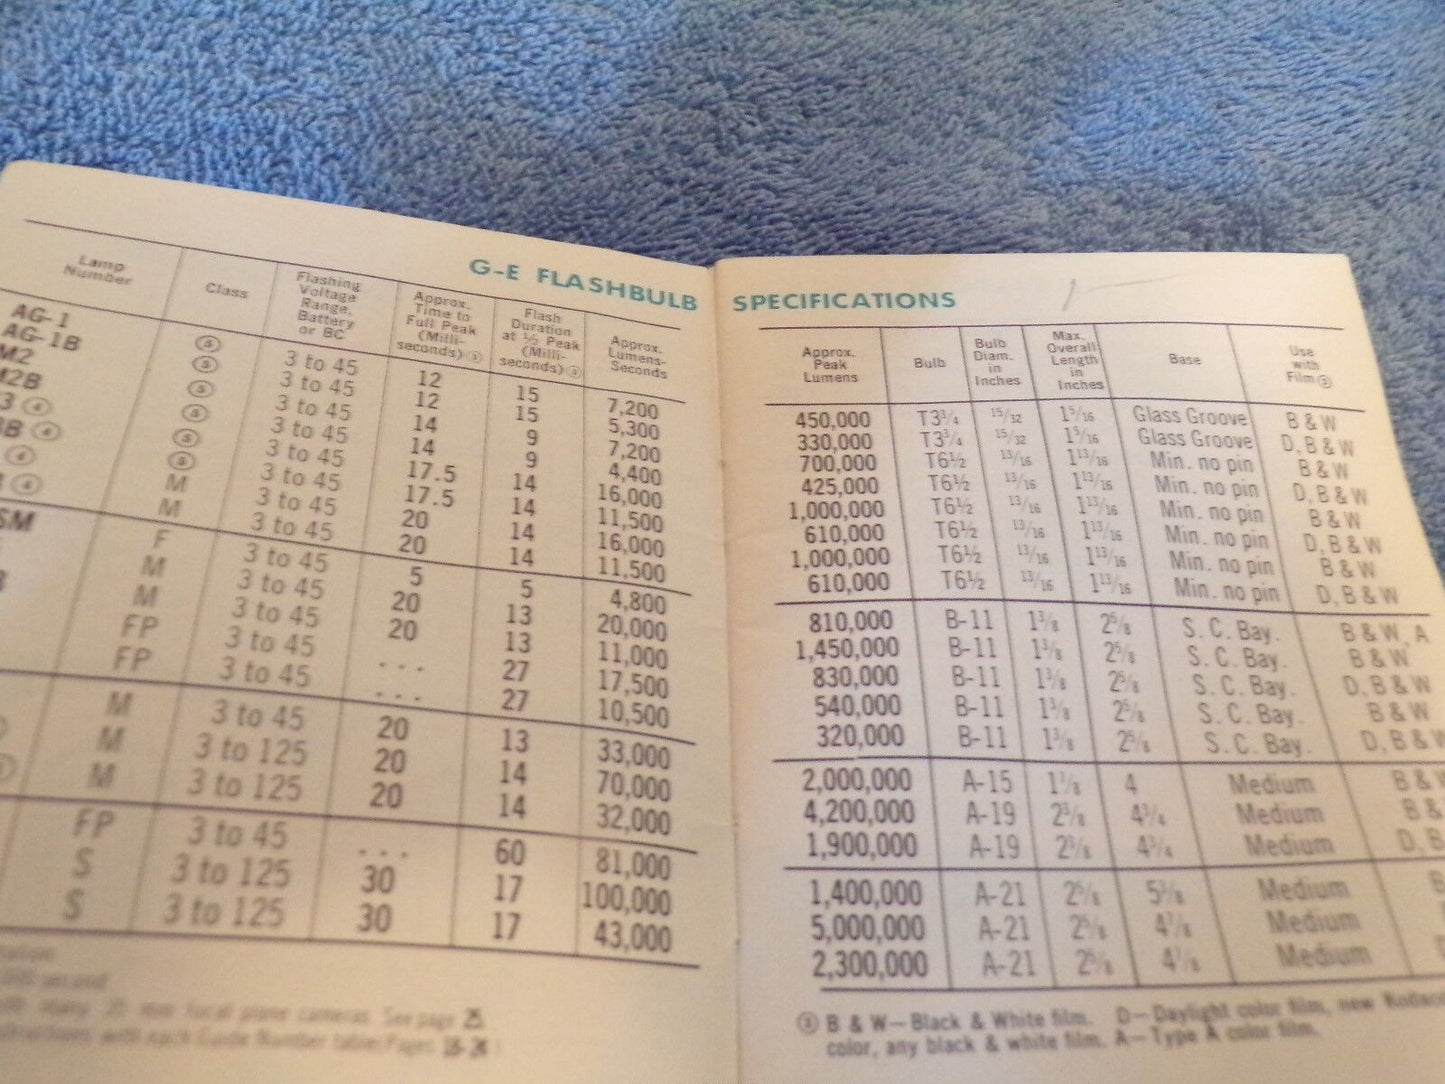 G-E FLASHBULB
Lamp
Number
Class
Flashing
Voltage
Range,
Battery
or BC
Approx.
Time to
Full Peak
(Milli-
seconds) ③
Flash
Duration
at ½ Peak
(Milli-
seconds) ③
Approx.
Lumens-
Seconds
AG-1 ⑤ 3 to 45 12 15 7,200
AG-1B ⑤ 3 to 45 12 15 5,300
M2 ⑤ 3 to 45 14 9 7,200
M2B ⑤ 3 to 45 14 9 4,400
3 ④ ⑤ 3 to 45 17.5 14 16,000
3B ④ ⑤ 3 to 45 17.5 14 11,500
④ M 3 to 45 20 14 16,000
④ M 3 to 45 20 14 11,500
SM F 3 to 45 5 5 4,800
M 3 to 45 20 13 20,000
M 3 to 45 20 13 11,000
FP 3 to 45 ... 27 17,500
FP 3 to 45 ... 27 10,500
M 3 to 45 20 13 33,000
M 3 to 125 20 14 70,000
M 3 to 125 20 14 32,000
FP 3 to 45 ... 60 81,000
S 3 to 125 30 17 100,000
S 3 to 125 30 17 43,000
second
many 35 mm focal plane cameras. See page 25
with each Guide Number table(Pages 18-24)
SPECIFICATIONS
Approx.
Peak
Lumens
Bulb
Bulb
Diam.
in
Inches
Max.
Overall
Length
in
Inches
Base
Use
with
Film ②
450,000 T3¾ 15/32 1 5/16 Glass Groove B & W
330,000 T3¾ 15/32 1 5/16 Glass Groove D, B & W
700,000 T6½ 13/16 1 13/16 Min. no pin B & W
425,000 T6½ 13/16 1 13/16 Min. no pin D, B & W
1,000,000 T6½ 13/16 1 13/16 Min. no pin B & W
610,000 T6½ 13/16 1 13/16 Min. no pin D, B & W
1,000,000 T6½ 13/16 1 13/16 Min. no pin B & W
610,000 T6½ 13/16 1 13/16 Min. no pin D, B & W
810,000 B-11 1⅜ 2⅝ S. C. Bay. B & W, A
1,450,000 B-11 1⅜ 2⅝ S. C. Bay. B & W
830,000 B-11 1⅜ 2⅝ S. C. Bay. D, B & W
540,000 B-11 1⅜ 2⅝ S. C. Bay. B & W
320,000 B-11 1⅜ 2⅝ S. C. Bay. D, B & W
2,000,000 A-15 1⅞ 4 Medium B & W
4,200,000 A-19 2⅜ 4¾ Medium B &
1,900,000 A-19 2⅜ 4¾ Medium D, B
1,400,000 A-21 2⅝ 5⅜ Medium B
5,000,000 A-21 2⅝ 4⅞ Medium
2,300,000 A-21 2⅝ 4⅞ Medium
② B & W—Black & White film. D—Daylight color film, new Kodac
color, any black & white film. A—Type A color film.